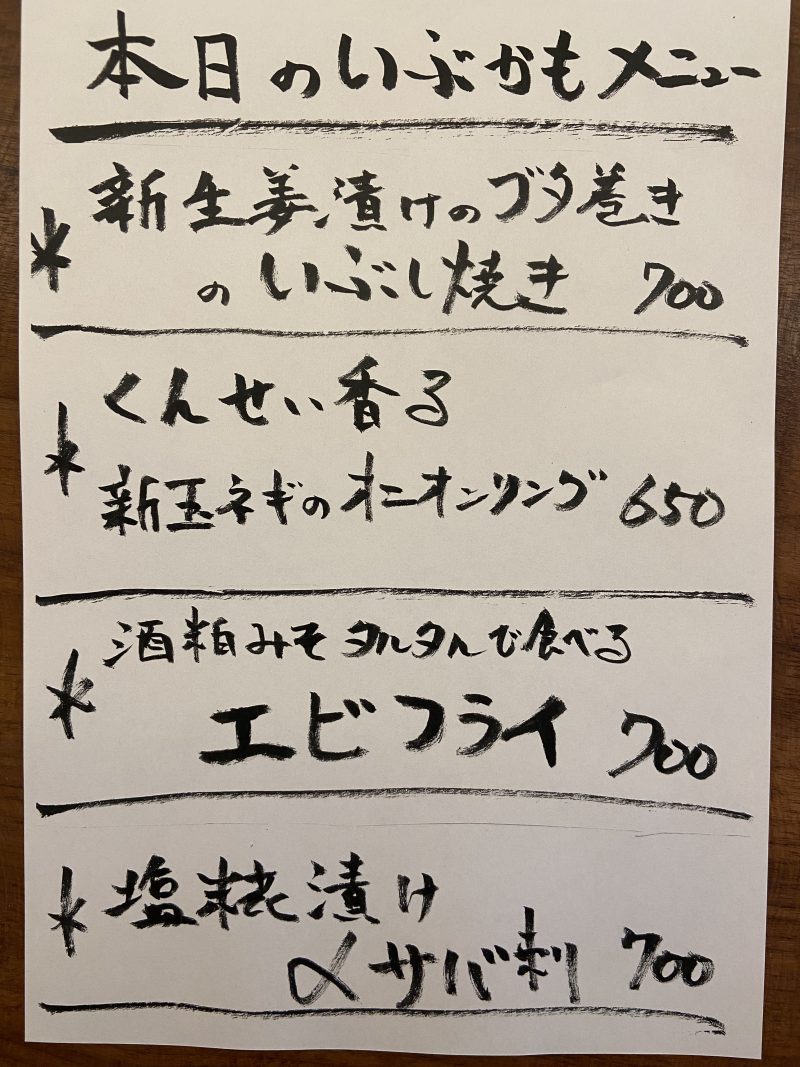 本日のいぶかもメニュー
* 新生姜漬けのブタ巻き
のいぶし焼き 700
* くんせい香る
新玉ネギのオニオンリング 650
* 酒粕みそタルタルで食べる
エビフライ 700
* 塩糀漬け
〆サバ刺 700